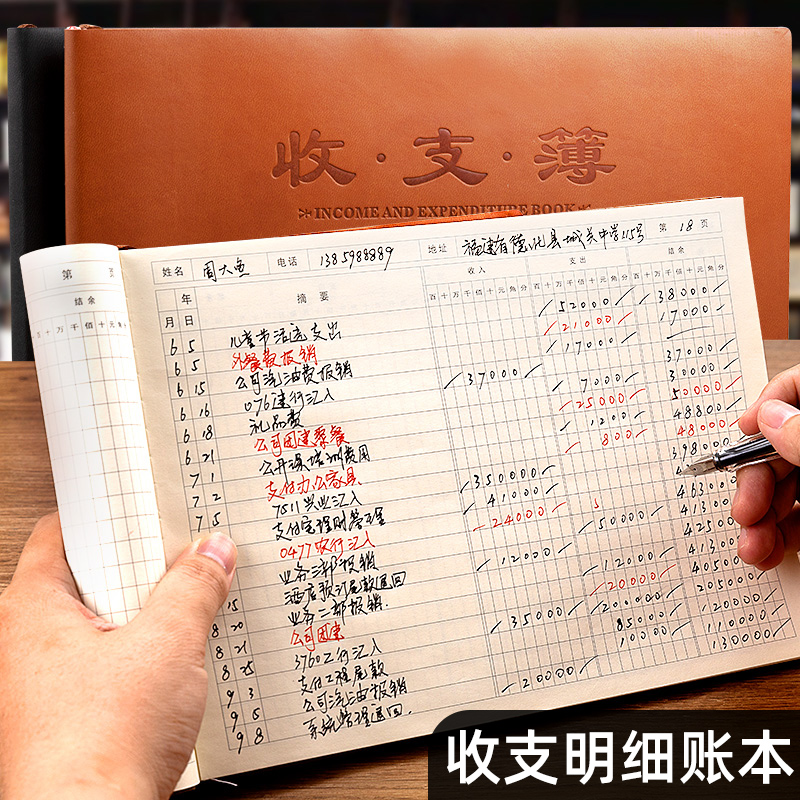 收·支·簿
INCOME AND EXPENDITURE BOOK
第 页
结余
十 万 千 佰 十 元 角
姓名 周大鱼 电话 1385988889 地址 福建省德化县城关中学115号 第 18 页
年 摘要 收入 支出 结余
月 日 百 十 万 千 佰 十 元 角 分 百 十 万 千 佰 十 元 角 分 百 十 万 千 佰 十 元 角 分
6 5 儿童节活动支出 52000 38000
6 5 外餐费报销 21000 17000
6 15 公司汽油费报销 17000
6 16 076建行汇入 37000 37000
6 18 礼品费 7000 30000
6 21 公司团建聚餐 25000 50000
7 1 公开课培训费用 1200 48800
7 2 支付办公家具 800 48000
7 5 7511兴业汇入 350000 398000
支付定程财务工资 41000
0477农行汇入 24000 463000
业务三部报销 50000 413000
酒店预订尾款退回 12000 425000
8 15 业务二部报销 12000 413000
8 20 公司团建 20000 405000
8 21 3760工行汇入 35000 200000 205000
8 25 支付工程尾款 85000 120000
9 3 公司汽油报销 10000 110000
9 5 系统管理退回 20000 130000
9 8
收支明细账本